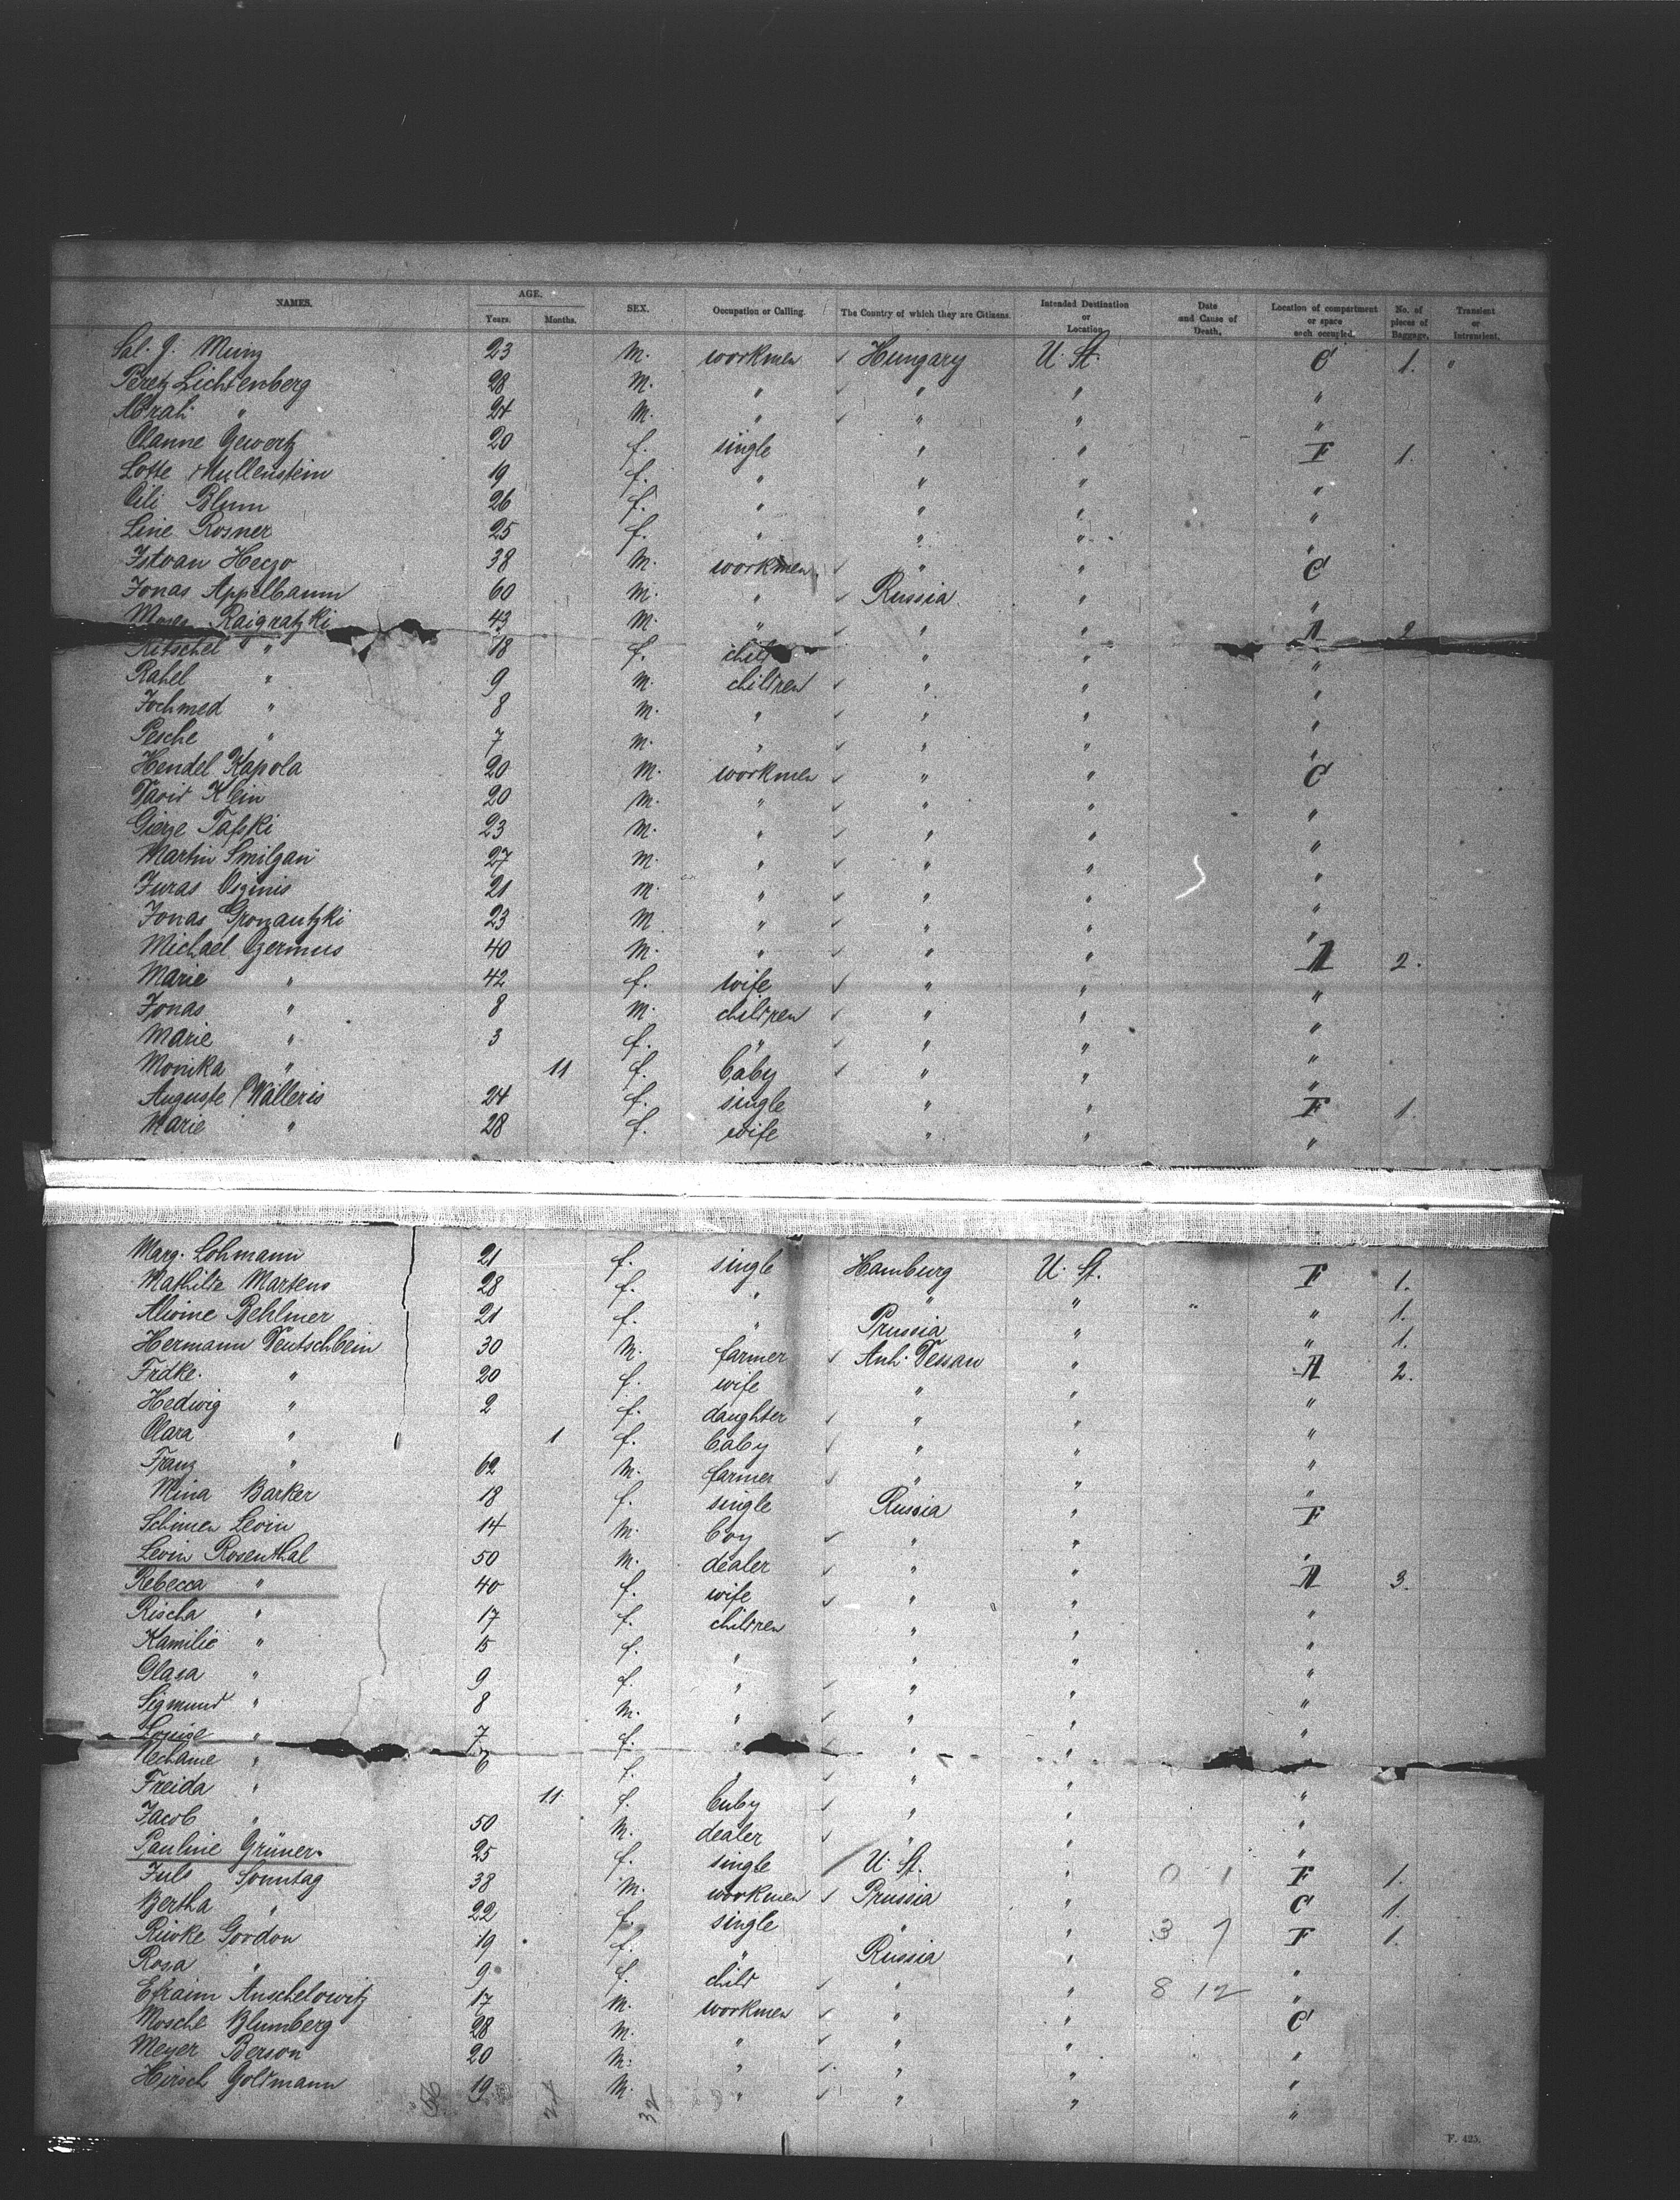 NAMES. AGE. Years. Months. SEX. Occupation or Calling. The Country of which they are Citizens. Intended Destination or Location. Date and Cause of Death. Location of compartment or space each occupied. No. of pieces of Baggage. Transient or Intransient.
Sal. J. Munz 23 M. workmen ✓ Hungary U. St. C 1. "
Peretz Lichtenberg 28 M. " ✓ " " "
Abrah. " 24 M. " ✓ " " "
Channe Gewertz 20 f. single " " F 1.
Lotte Mullenstein 19 f. " " " "
Cili Blum 26 f. " " " "
Line Rosner 25 f. " " " "
Istvan Heczo 38 M. workmen ✓ " " C
Jonas Appelbaum 60 M. " ✓ Russia " "
Moses Raigratzki 43 M. " ✓ " " A 2
Kitschel " 18 f. child " " "
Rahel " 9 M. children ✓ " " "
Jochmed " 8 M. " ✓ " " "
Pesche " 7 M. " ✓ " " "
Hendel Kapola 20 M. workmen ✓ " " C
David Klein 20 M. " ✓ " " "
Gierze Tafski 23 M. " ✓ " " "
Martin Smilgan 27 M. " ✓ " " "
Juras Osginis 21 M. " ✓ " " "
Jonas Gronautzki 23 M " ✓ " " "
Michael Czermus 40 M. " ✓ " " A 2.
Marie " 42 f. wife ✓ " " "
Jonas " 8 M. children ✓ " " "
Marie " 3 f. " ✓ " " "
Monika " 11 f. baby ✓ " " "
Auguste Walleris 24 f. single " " F 1.
Marie " 28 f. wife " " "
Marg. Lohmann 21 f. single Hamburg U. St. F 1.
Mathilde Martens 28 f. " " " " 1.
Alwine Behlmer 21 f. " Prussia " " 1.
Hermann Deutschbein 30 M. farmer ✓ Anh. Dessau " A 2.
Frdke. " 20 f. wife " " "
Hedwig " 2 f. daughter ✓ " " "
Clara " 1 f. baby ✓ " " "
Franz " 62 M. farmer ✓ " " "
Mina Barker 18 f. single Russia " F
Schimen Levin 14 M. boy ✓ " " "
Levin Rosenthal 50 M. dealer ✓ " " A 3.
Rebecca " 40 f. wife ✓ " " "
Rischa " 17 f. children " " "
Kamilie " 15 f. " " " "
Glasa " 9 f. " ✓ " " "
Sigmund " 8 M. " ✓ " " "
Louise " 7 f. " ✓ " "
Nechame " 6 f. " ✓ " " "
Freida " 11 f. baby ✓ " " "
Jacob " 50 M. dealer ✓ " " "
Pauline Grüner. 25 f. single / U. St. " 0 1 F 1.
Jule Sonntag 38 M. workmen ✓ Prussia " C 1.
Bertha " 22 f. single " " 3 7 F 1.
Riwke Gordon 19 f. " Russia " "
Rosa " 9 f. child ✓ " " 8 12 "
Efraim Anschelowitz 17 M. workmen ✓ " " C
Mosche Blumberg 28 M. " ✓ " " "
Meyer Berson 20 M. " ✓ " " "
Hirsch Goldmann 19 M. " ✓ " " "
24 32
F. 425.